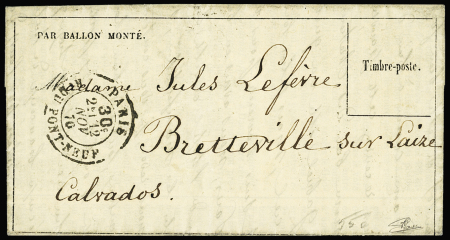 PAR BALLON MONTÉ.
Timbre-poste.
Madame Jules Lefèvre
PARIS
R. DU PONT-NEUF
30
NOV.
70
Bretteville sur Laize
Calvados.